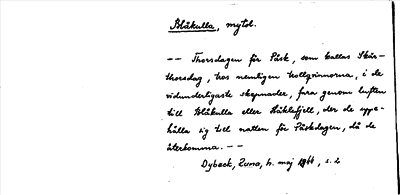 Blåkulla, mytol.
-- Thorsdagen för Påsk, som kallas Skär-
thorsdag, tros nemligen trollqvinnorna, i de
vidunderligaste skepnader, fara genom luften
till Blåkulla eller Häklefjell, der de uppe-
hålla sig till natten för Påskdagen, då de
återkomma. --
Dybeck, Runa, h. maj 1844, s. 2